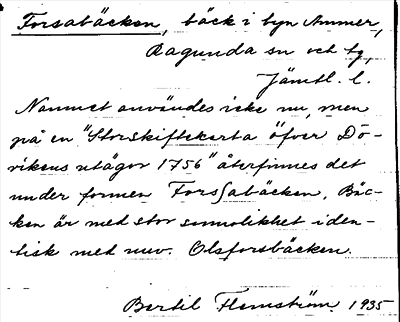 Forsabäcken, bäck i byn Ammer,
Ragunda sn och tg,
Jämtl. l.
Namnet användes icke nu, men
på en "Storskifteskarta öfver Dö-
vikens utägor 1756" återfinnes det
under formen Forsſabäcken. Bäc-
ken är med stor sannolikhet iden-
tisk med nuv. Olsforsbäcken.
Bertil Flemström 1935